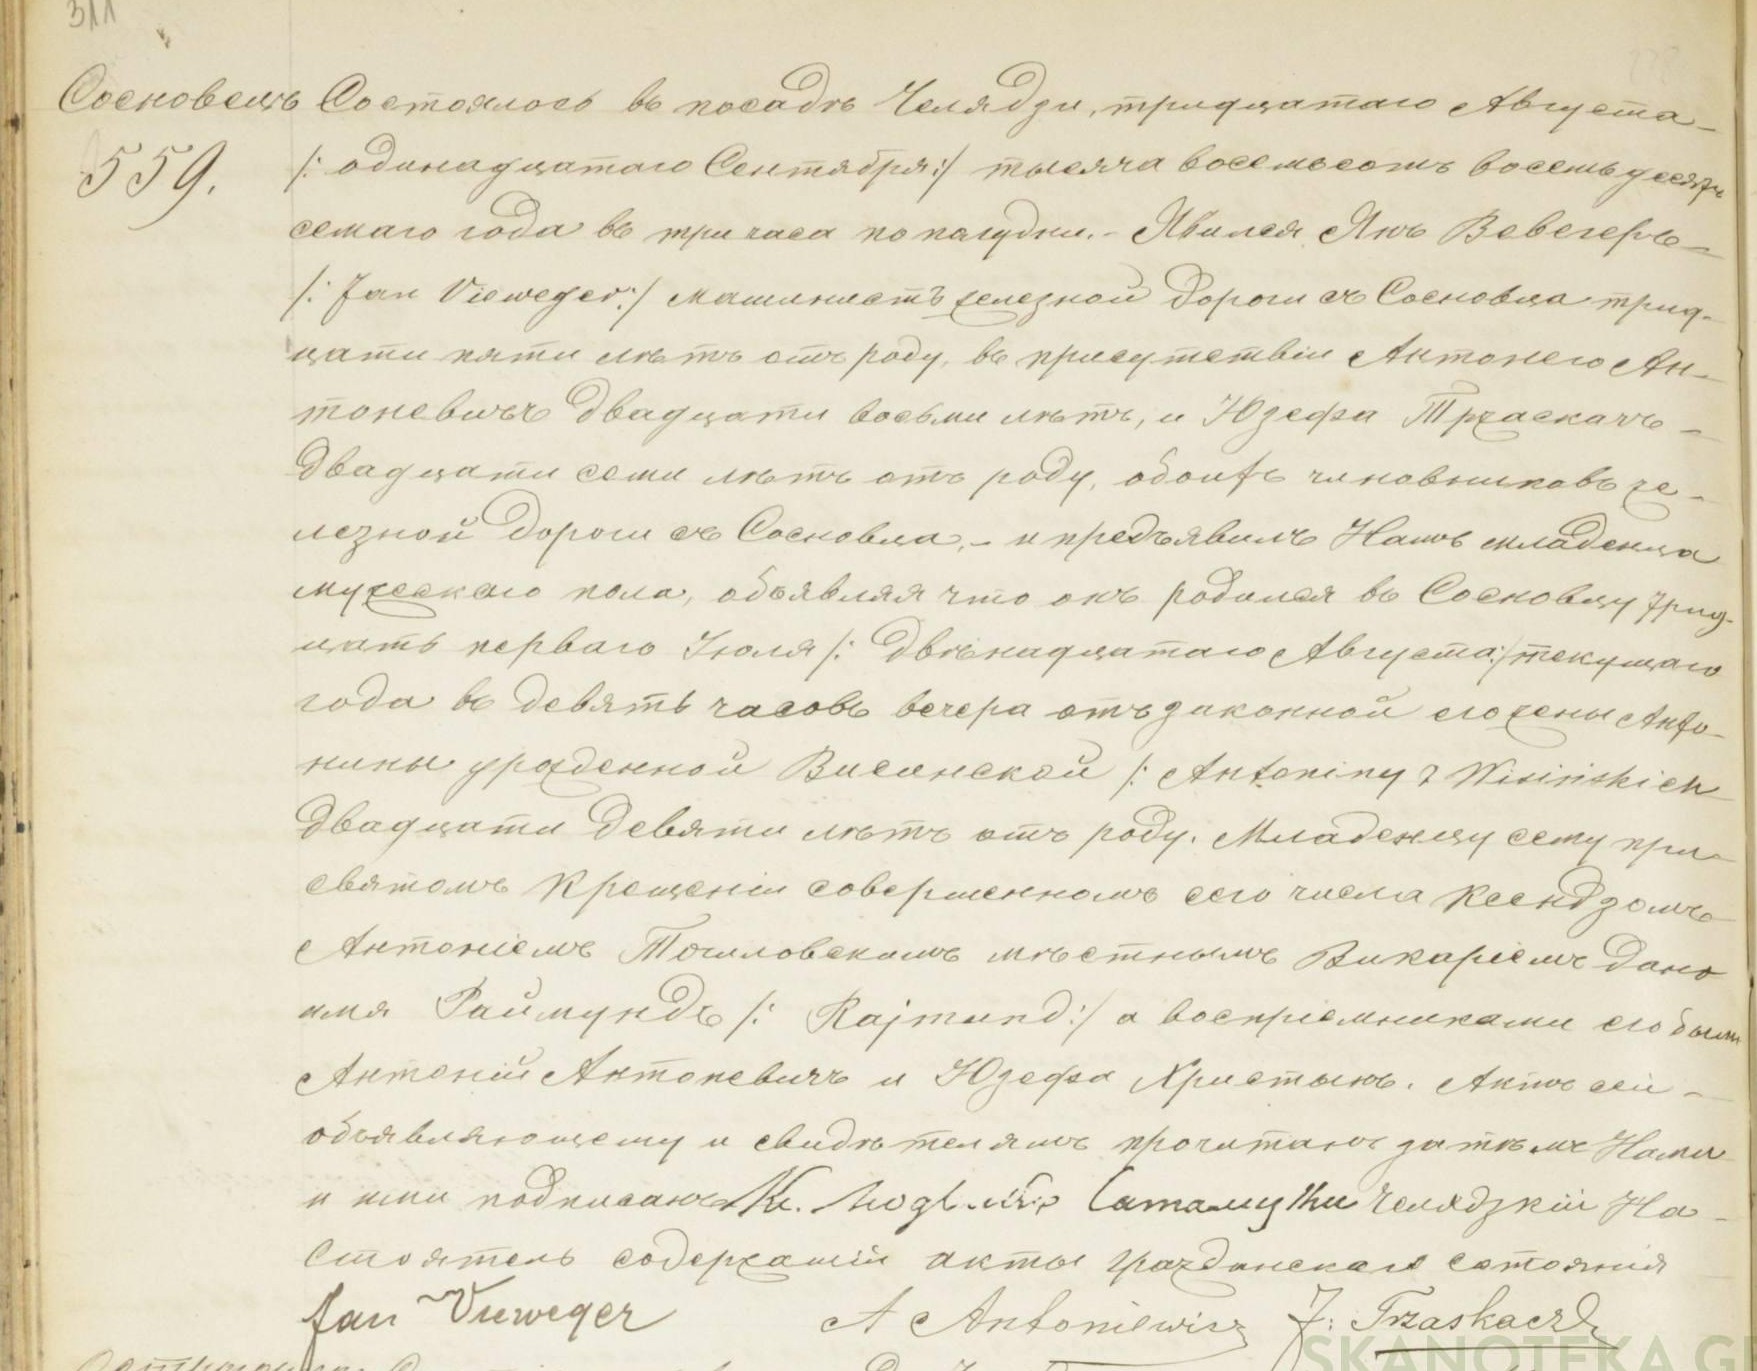 311
Сосновецъ Состоялось въ посадѣ Челядзи, тридцатаго Августа
559. /: одинадцатаго Сентября :/ тысяча восемьсотъ восемьдесятъ
семаго года въ три часа по полудни. - Явился Янъ Вевегеръ
/: Jan Vieweger :/ машинистъ железной дороги съ Сосновца трид-
цати пяти лѣтъ отъ роду, въ присутствіи Антонего Ан-
тоневичъ двадцати восьми лѣтъ, и Юзефа Тржаскачъ
двадцати семи лѣтъ отъ роду, обоихъ чиновниковъ же-
лезной дороги съ Сосновца, - и предъявилъ Намъ младенца
мужескаго пола, объявляя что онъ родился въ Сосновцу трид-
цать перваго Іюля /: двѣнадцатаго Августа :/ текущаго
года въ девять часовъ вечера отъ законной его жены Анто-
нины урожденной Висинской /: Antoniny z Wisińskich
двадцати девяти лѣтъ отъ роду. Младенцу сему при
святомъ крещеніи совершенномъ сего числа Ксендзомъ
Антоніемъ мѣстнымъ Викаріемъ дано
имя Раймундъ /: Rajmund :/ а воспріемниками его были
Антоній Антоневичъ и Юзефа Христынъ. Актъ сей
объявляющему и свидѣтелямъ прочитанъ затѣмъ Нами
и ими подписанъ Кс. Челядзкій На-
стоятель содержащій акты гражданскаго состоянія
Jan Vieweger A Antoniewicz J: Trzaskacz
SKANOTEKA.G